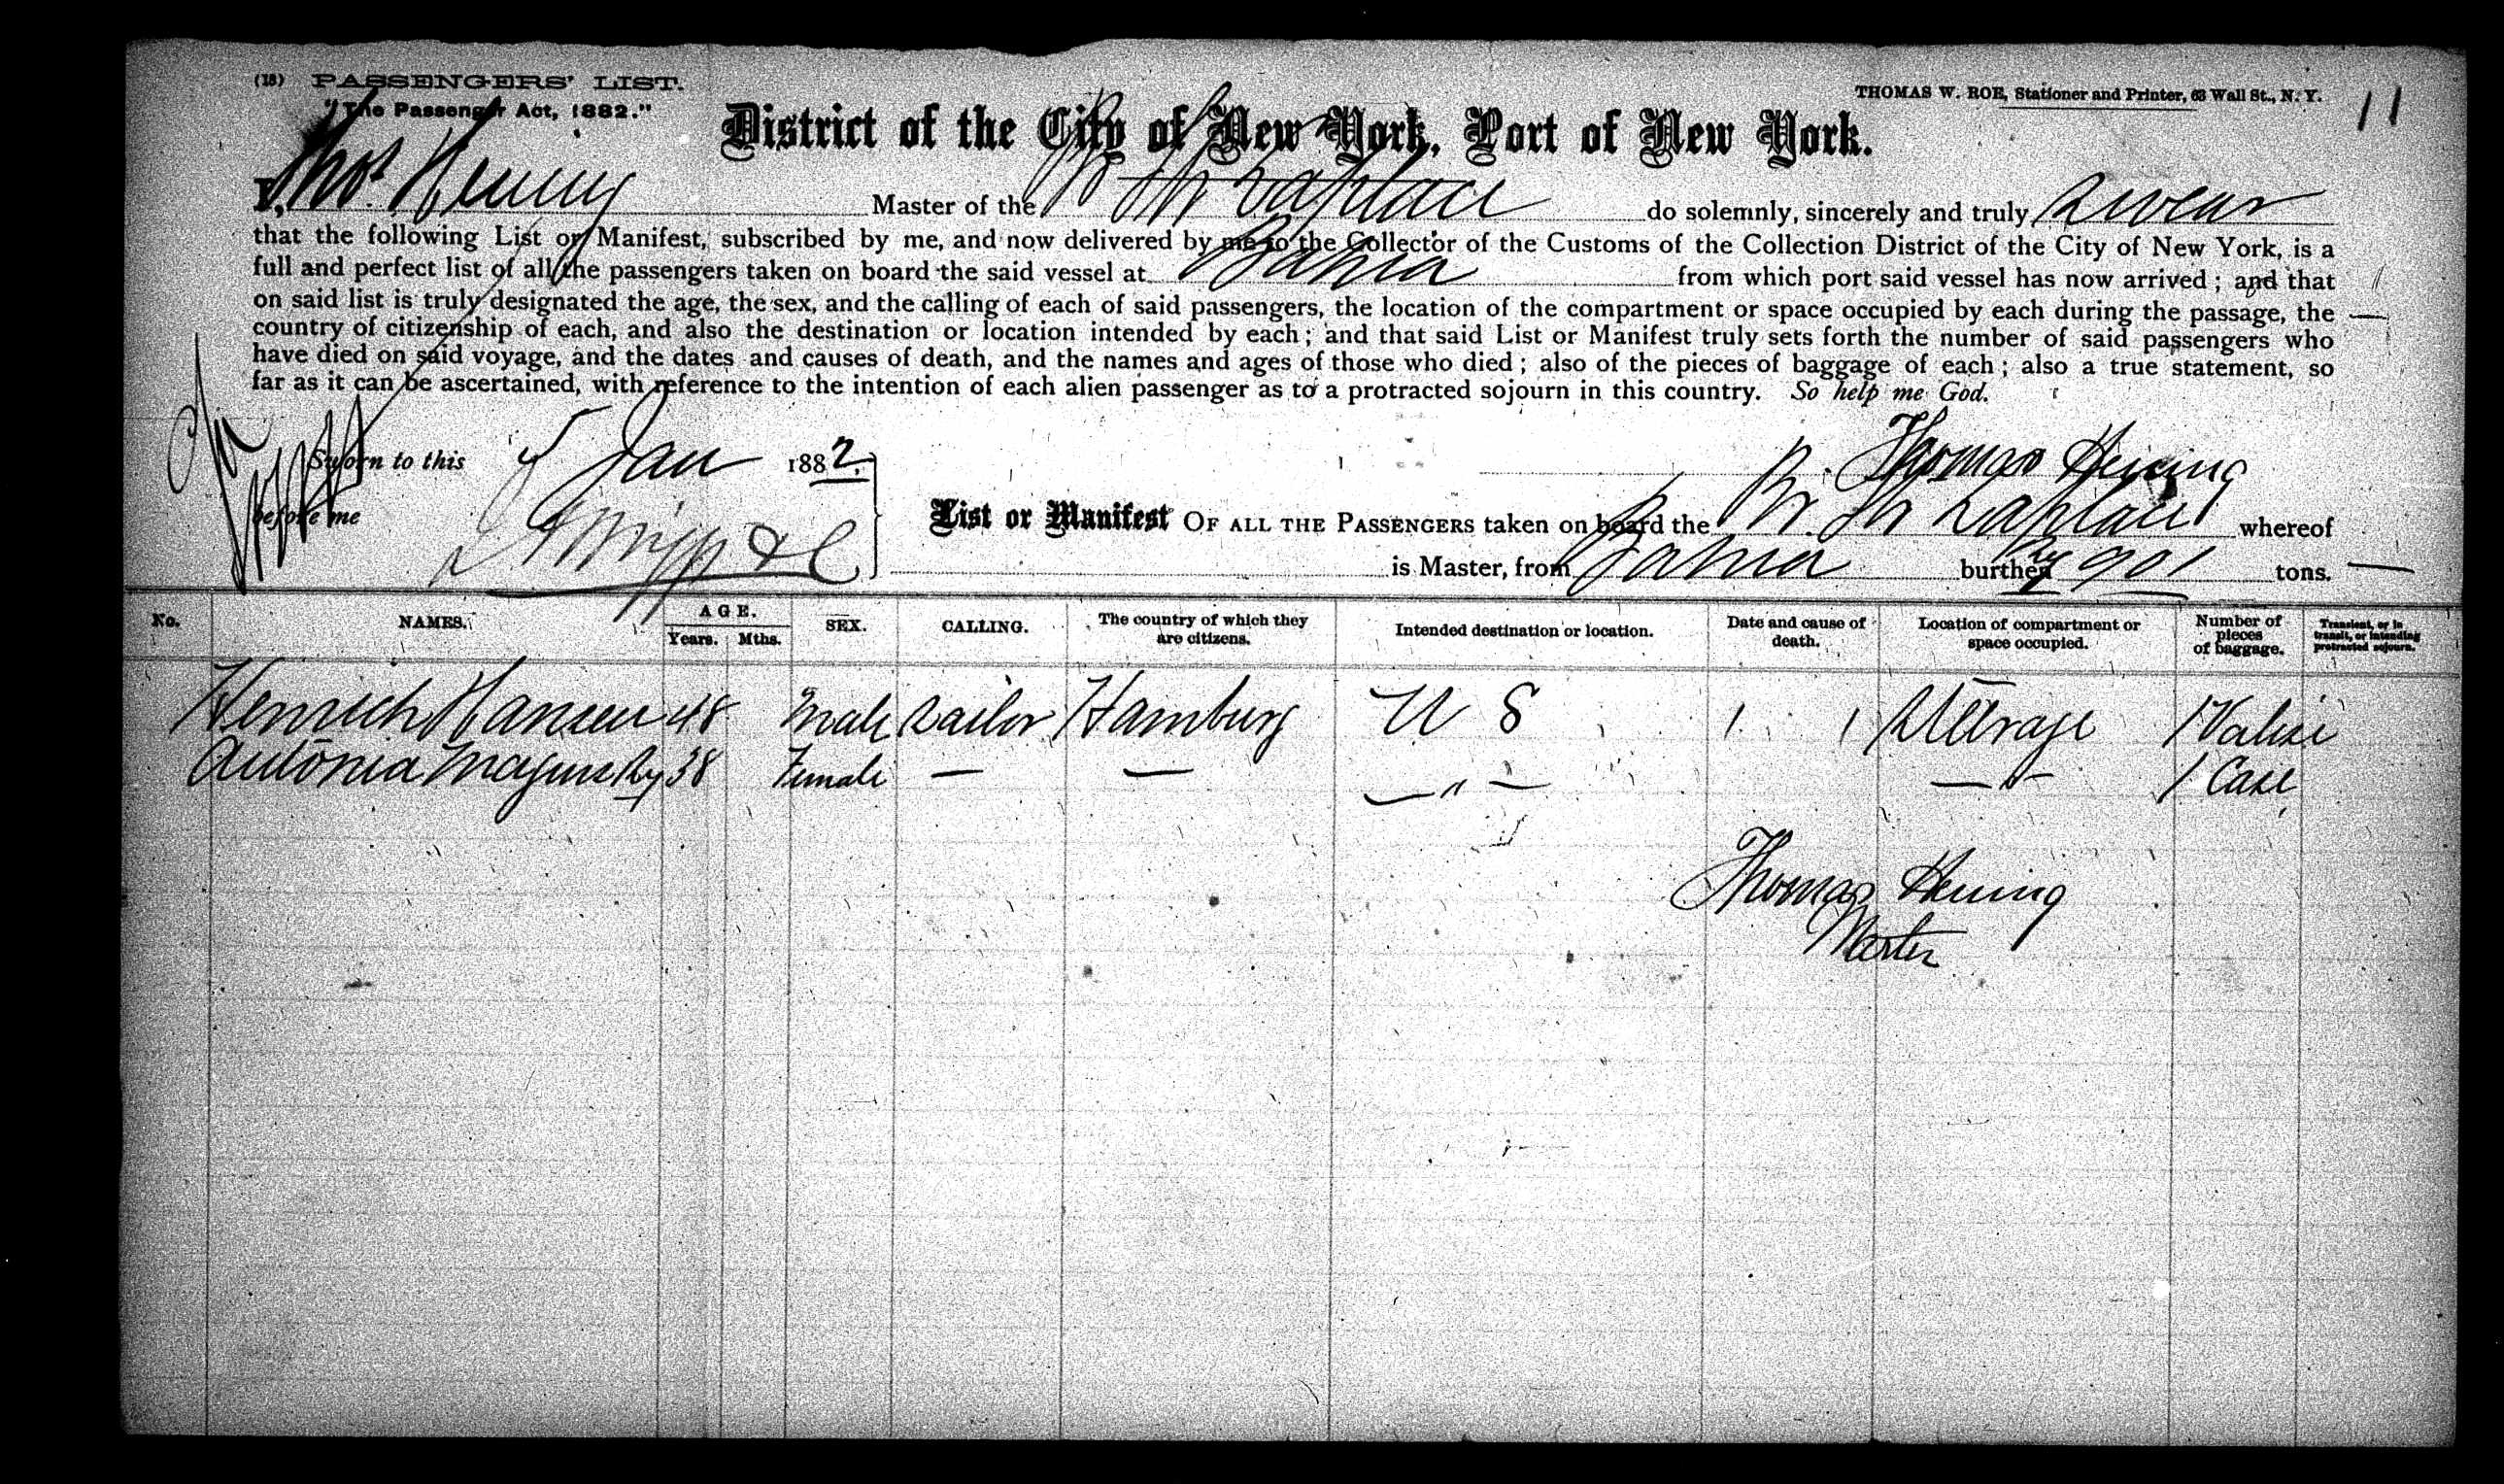 (18) PASSENGERS' LIST.
THOMAS W. ROE, Stationer and Printer, 63 Wall St., N. Y.
11
"The Passenger Act, 1882."
District of the City of New York, Port of New York.
I, Thos. Master of the Br Str Laplace do solemnly, sincerely and truly swear
that the following List or Manifest, subscribed by me, and now delivered by me to the Collector of the Customs of the Collection District of the City of New York, is a
full and perfect list of all the passengers taken on board the said vessel at Bahia from which port said vessel has now arrived; and that
on said list is truly designated the age, the sex, and the calling of each of said passengers, the location of the compartment or space occupied by each during the passage, the
country of citizenship of each, and also the destination or location intended by each; and that said List or Manifest truly sets forth the number of said passengers who
have died on said voyage, and the dates and causes of death, and the names and ages of those who died; also of the pieces of baggage of each; also a true statement, so
far as it can be ascertained, with reference to the intention of each alien passenger as to a protracted sojourn in this country. So help me God.
Sworn to this 5 Jan 1882
Thomas
before me
List or Manifest OF ALL THE PASSENGERS taken on board the Br. Str Laplace whereof
is Master, from Bahia burthen 901 tons.
No. NAMES. AGE. Years. Mths. SEX. CALLING. The country of which they are citizens. Intended destination or location. Date and cause of death. Location of compartment or space occupied. Number of pieces of baggage. Transient, or in transit, or intending protracted sojourn.
Henrich Hansen 48 Male Sailor Hamburg U S Steerage 1 Valise
Antonia 38 Female — — — " — — " — 1 Case
Thomas
Master